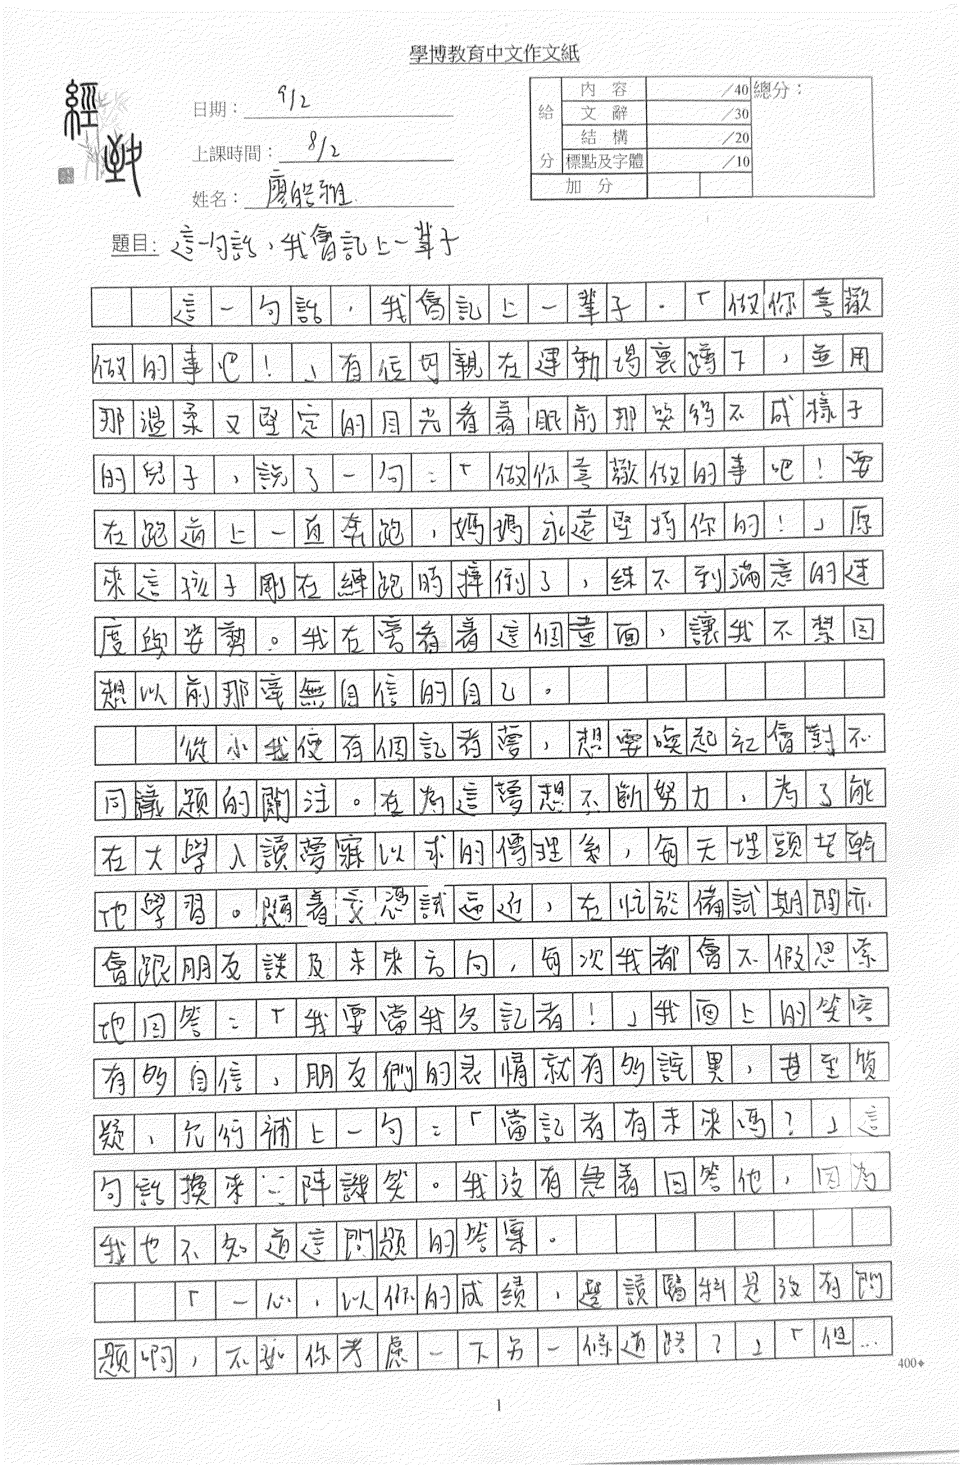 學博教育中文作文紙
經 教
日期： 9/2
上課時間： 8/2
姓名： 廖皓雅
給分
內容 /40
文辭 /30
結構 /20
標點及字體 /10
加分
總分：
題目： 這一句話，我會記上一輩子
這一句話，我會記上一輩子。「做你喜歡
做的事吧！」有位母親在運動場裏蹲下，並用
那溫柔又堅定的目光看着眼前那哭的不成樣子
的兒子，說了一句：「做你喜歡做的事吧！要
在跑道上一直奔跑，媽媽永遠堅持你的！」原
來這孩子剛在練跑時摔倒了，練不到滿意的速
度與姿勢。我在旁看着這個畫面，讓我不禁回
想以前那毫無自信的自己。
從小我便有個記者夢，想要喚起社會對不
同議題的關注。在為這夢想不斷努力，為了能
在大學入讀夢寐以求的傳理系，每天埋頭苦幹
地學習。隨着文憑試逼近，在忙於備試期間亦
會跟朋友談及未來方向，每次我都會不假思索
地回答：「我要當我名記者！」我面上的笑容
有多自信，朋友們的表情就有多詫異，甚至質
疑，允行補上一句：「當記者有未來嗎？」這
句話換來三陣譏笑。我沒有急着回答他，因為
我也不知道這問題的答案。
「一心，以你的成績，選讀醫科是沒有問
題啊，不如你考慮一下另一條道路？」「但…
400
1